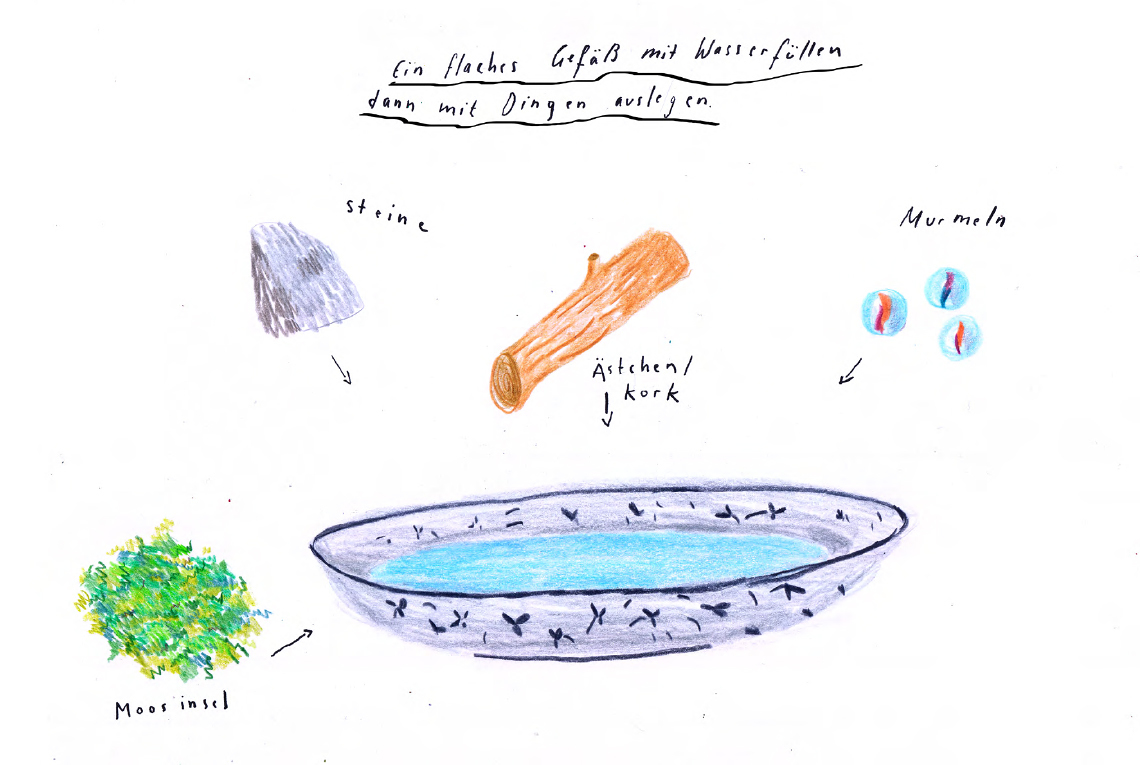 Ein flaches Gefäß mit Wasser füllen
dann mit Dingen auslegen.
Steine
Murmeln
Ästchen/
Kork
Moosinsel